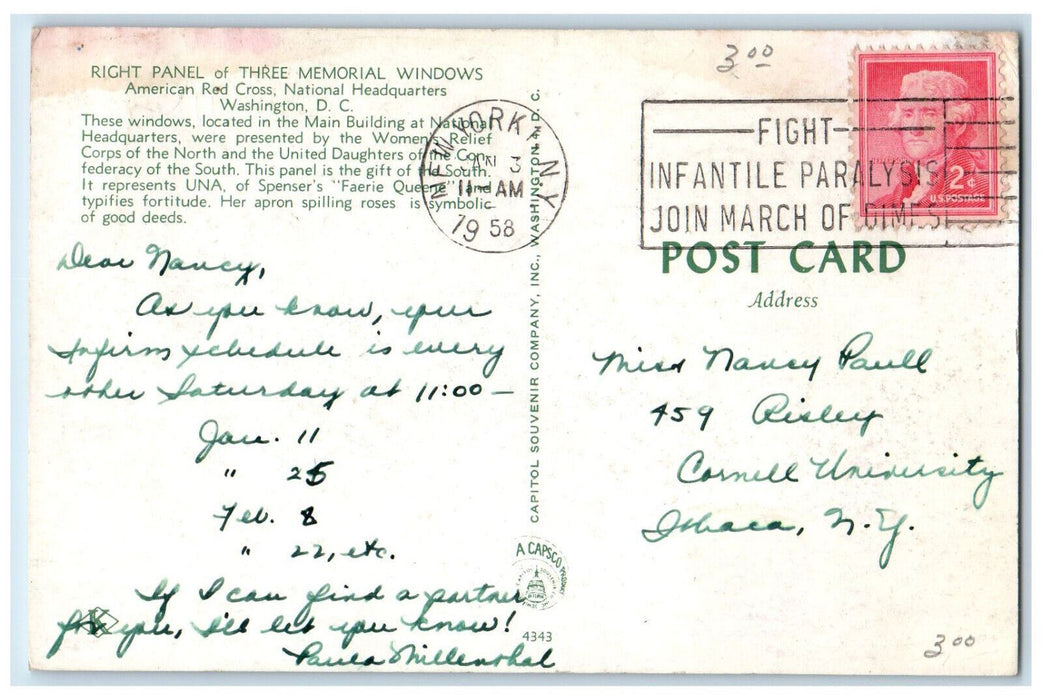 RIGHT PANEL of THREE MEMORIAL WINDOWS
American Red Cross, National Headquarters
Washington, D. C.
These windows, located in the Main Building at National
Headquarters, were presented by the Women's Relief
Corps of the North and the United Daughters of the Con-
federacy of the South. This panel is the gift of the South.
It represents UNA, of Spenser's "Faerie Queene" and
typifies fortitude. Her apron spilling roses is symbolic
of good deeds.
NEW YORK, N.Y.
JAN 3
11 AM
1958
3 00
FIGHT
INFANTILE PARALYSIS
JOIN MARCH OF DIMES
2¢
U.S. POSTAGE
Dear Nancy,
As you know, your
Infirm schedule is every
other Saturday at 11:00 —
Jan. 11
" 25
Feb. 8
" 22, etc.
If I can find a partner
for you, I'll let you know!
Paula Millenthal
CAPITOL SOUVENIR COMPANY, INC., WASHINGTON, D. C.
A CAPSCO
4343
POST CARD
Address
Miss Nancy Paull
459 Risley
Cornell University
Ithaca, N.Y.
3 00